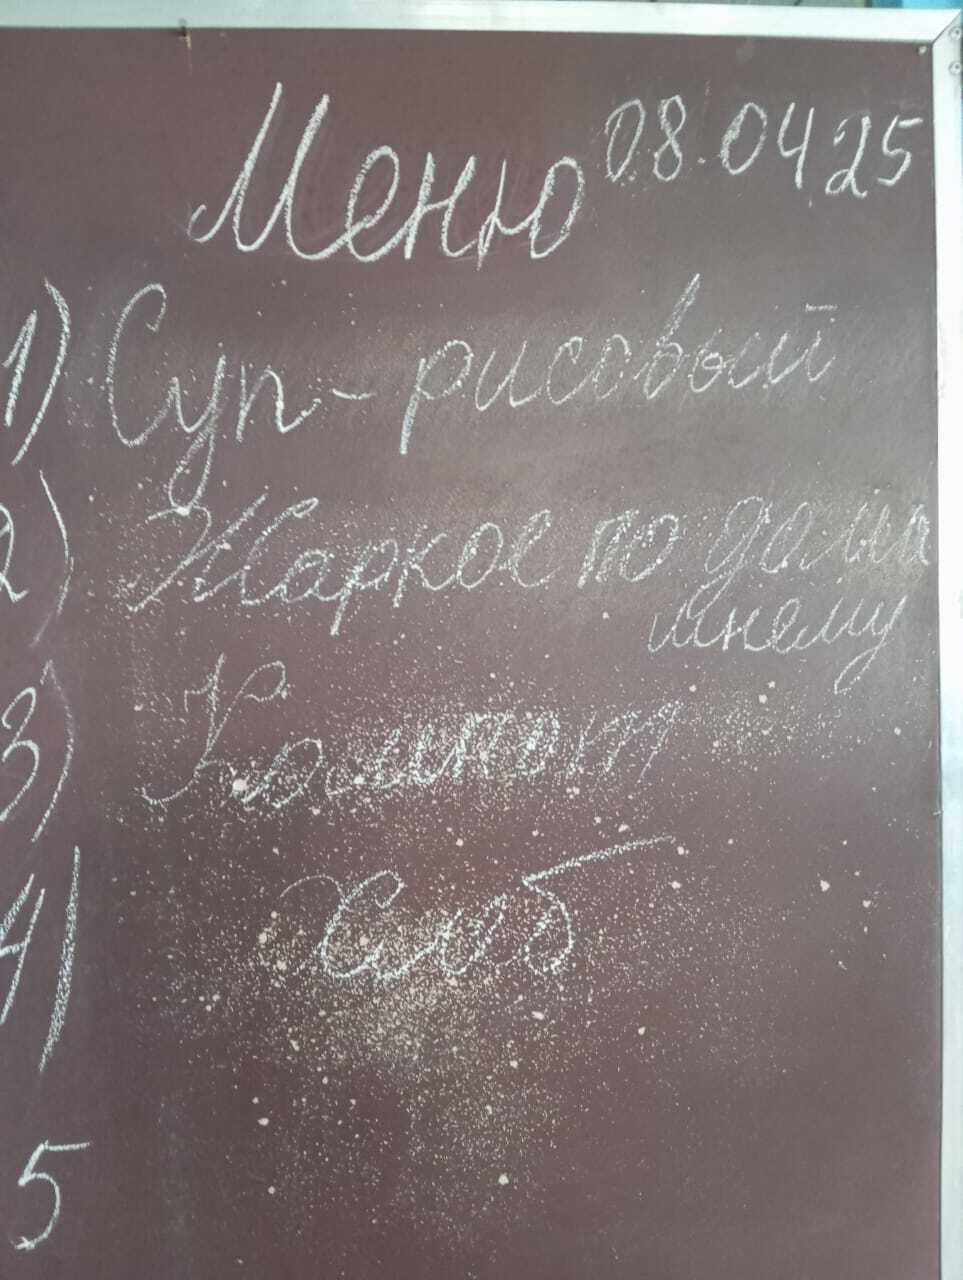 Меню 08.04.25
1) Суп - рисовый
2) Жаркое по дома
шнему
3) Компот
4) Хлеб
5